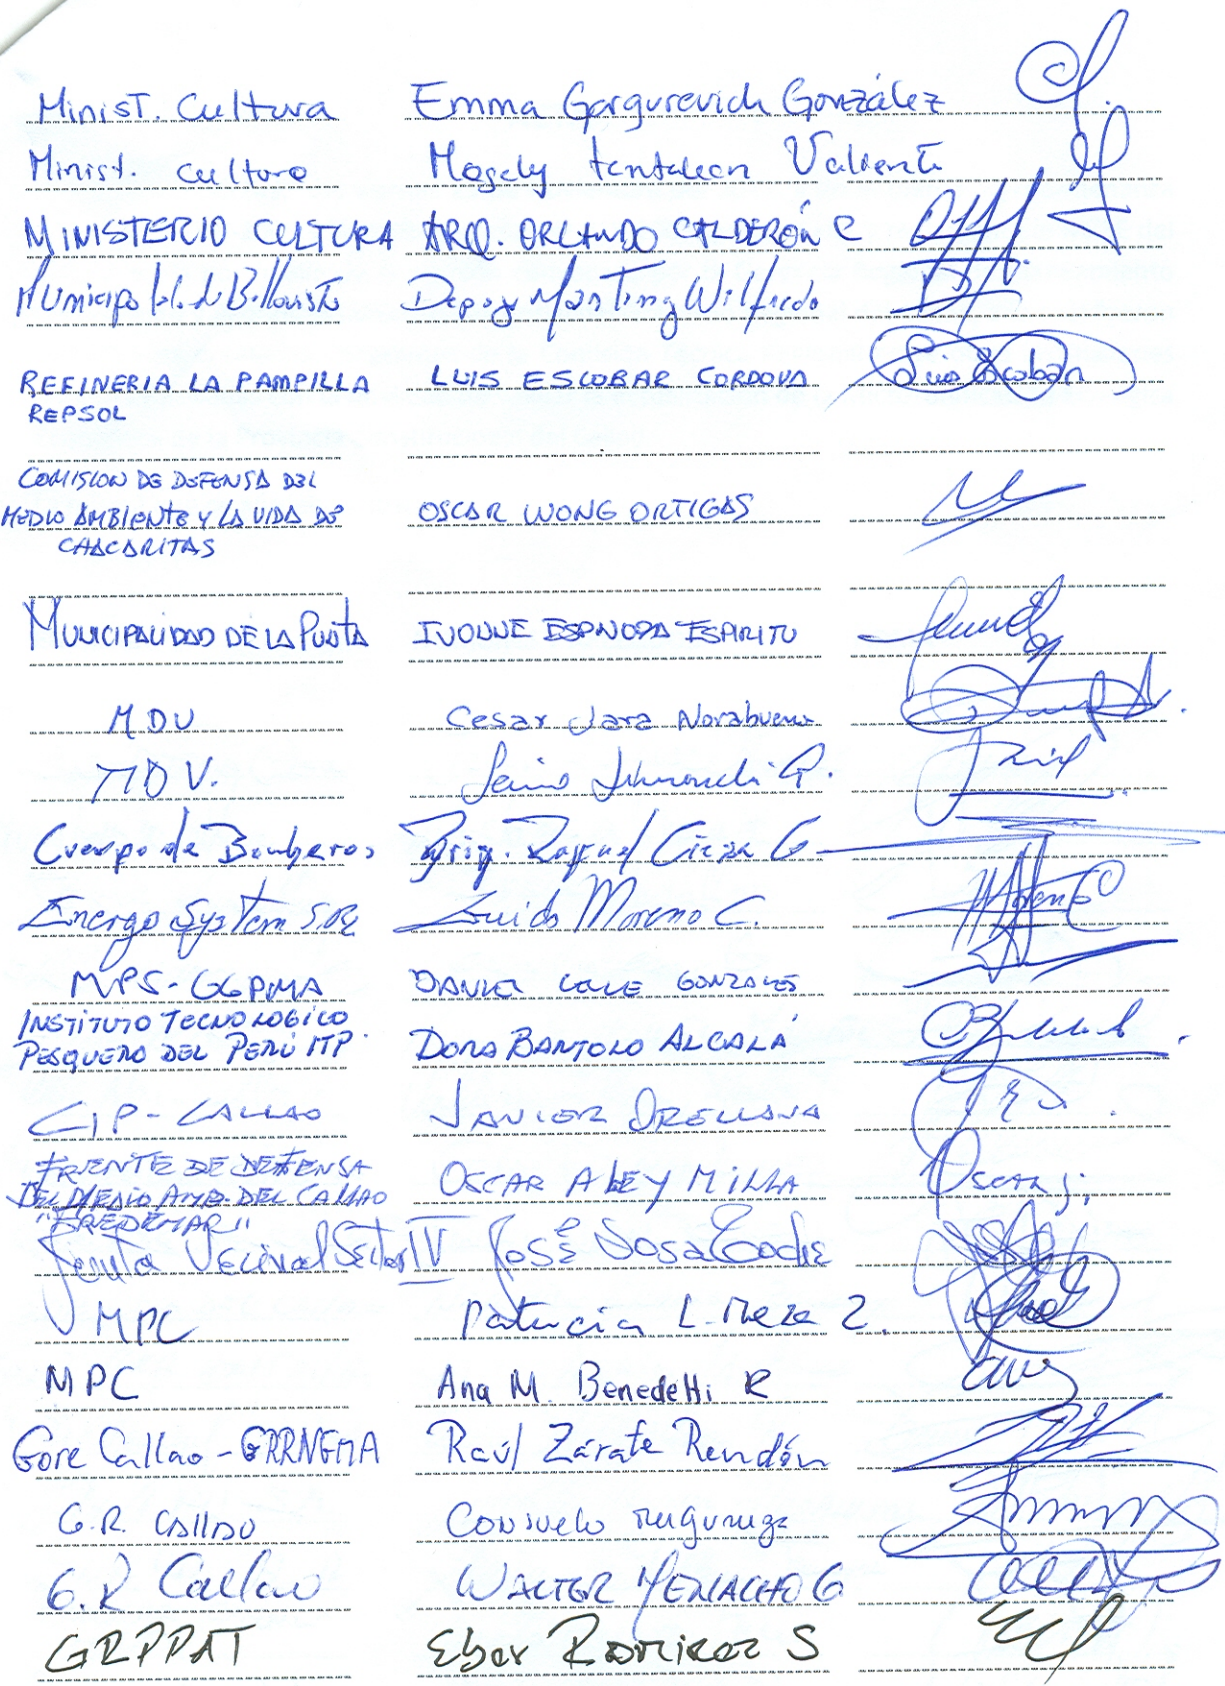 Minist. Cultura Emma Gorgurevich González
Minist. Cultura Magaly Tantalean Valiente
MINISTERIO CULTURA ARQ. ORLANDO CALDERÓN C
Wilfredo
REFINERIA LA PAMPILLA LUIS ESCOBAR CORDOVA Luis Escobar
REPSOL
COMISION DE DEFENSA DEL
MEDIO AMBIENTE Y LA VIDA DE OSCAR WONG ORTIGAS
CHACARITAS
MUNICIPALIDAD DE LA PUNTA IVONNE ESPINOZA ESPIRITU
MDV Cesar Jara Norabuena
MDV.
Cuerpo de Bomberos Brig. Raquel Cieza G
Energo System Guido Moreno C. Moreno C
MPS-GGPMA DANIEL GONZALES
INSTITUTO TECNOLOGICO
PESQUERO DEL PERÚ ITP. DORA BARTOLO ALCALÁ
CIP-CALLAO JAVIER ORELLANA
FRENTE DE DEFENSA
DEL MEDIO AMB. DEL CALLAO OSCAR ALEY MILLA Oscar
"FREDEMAR"
Junta Vecinal Sector IV José Sosa
MPC Patricia L. Meza Z.
MPC Ana M. Benedetti R
Gore Callao - GRRNGMA Raúl Zárate Rendón
G.R. CALLAO Consuelo
G.R Callao WALTER MENACHO G
GRPPAT Eber Ramirez S